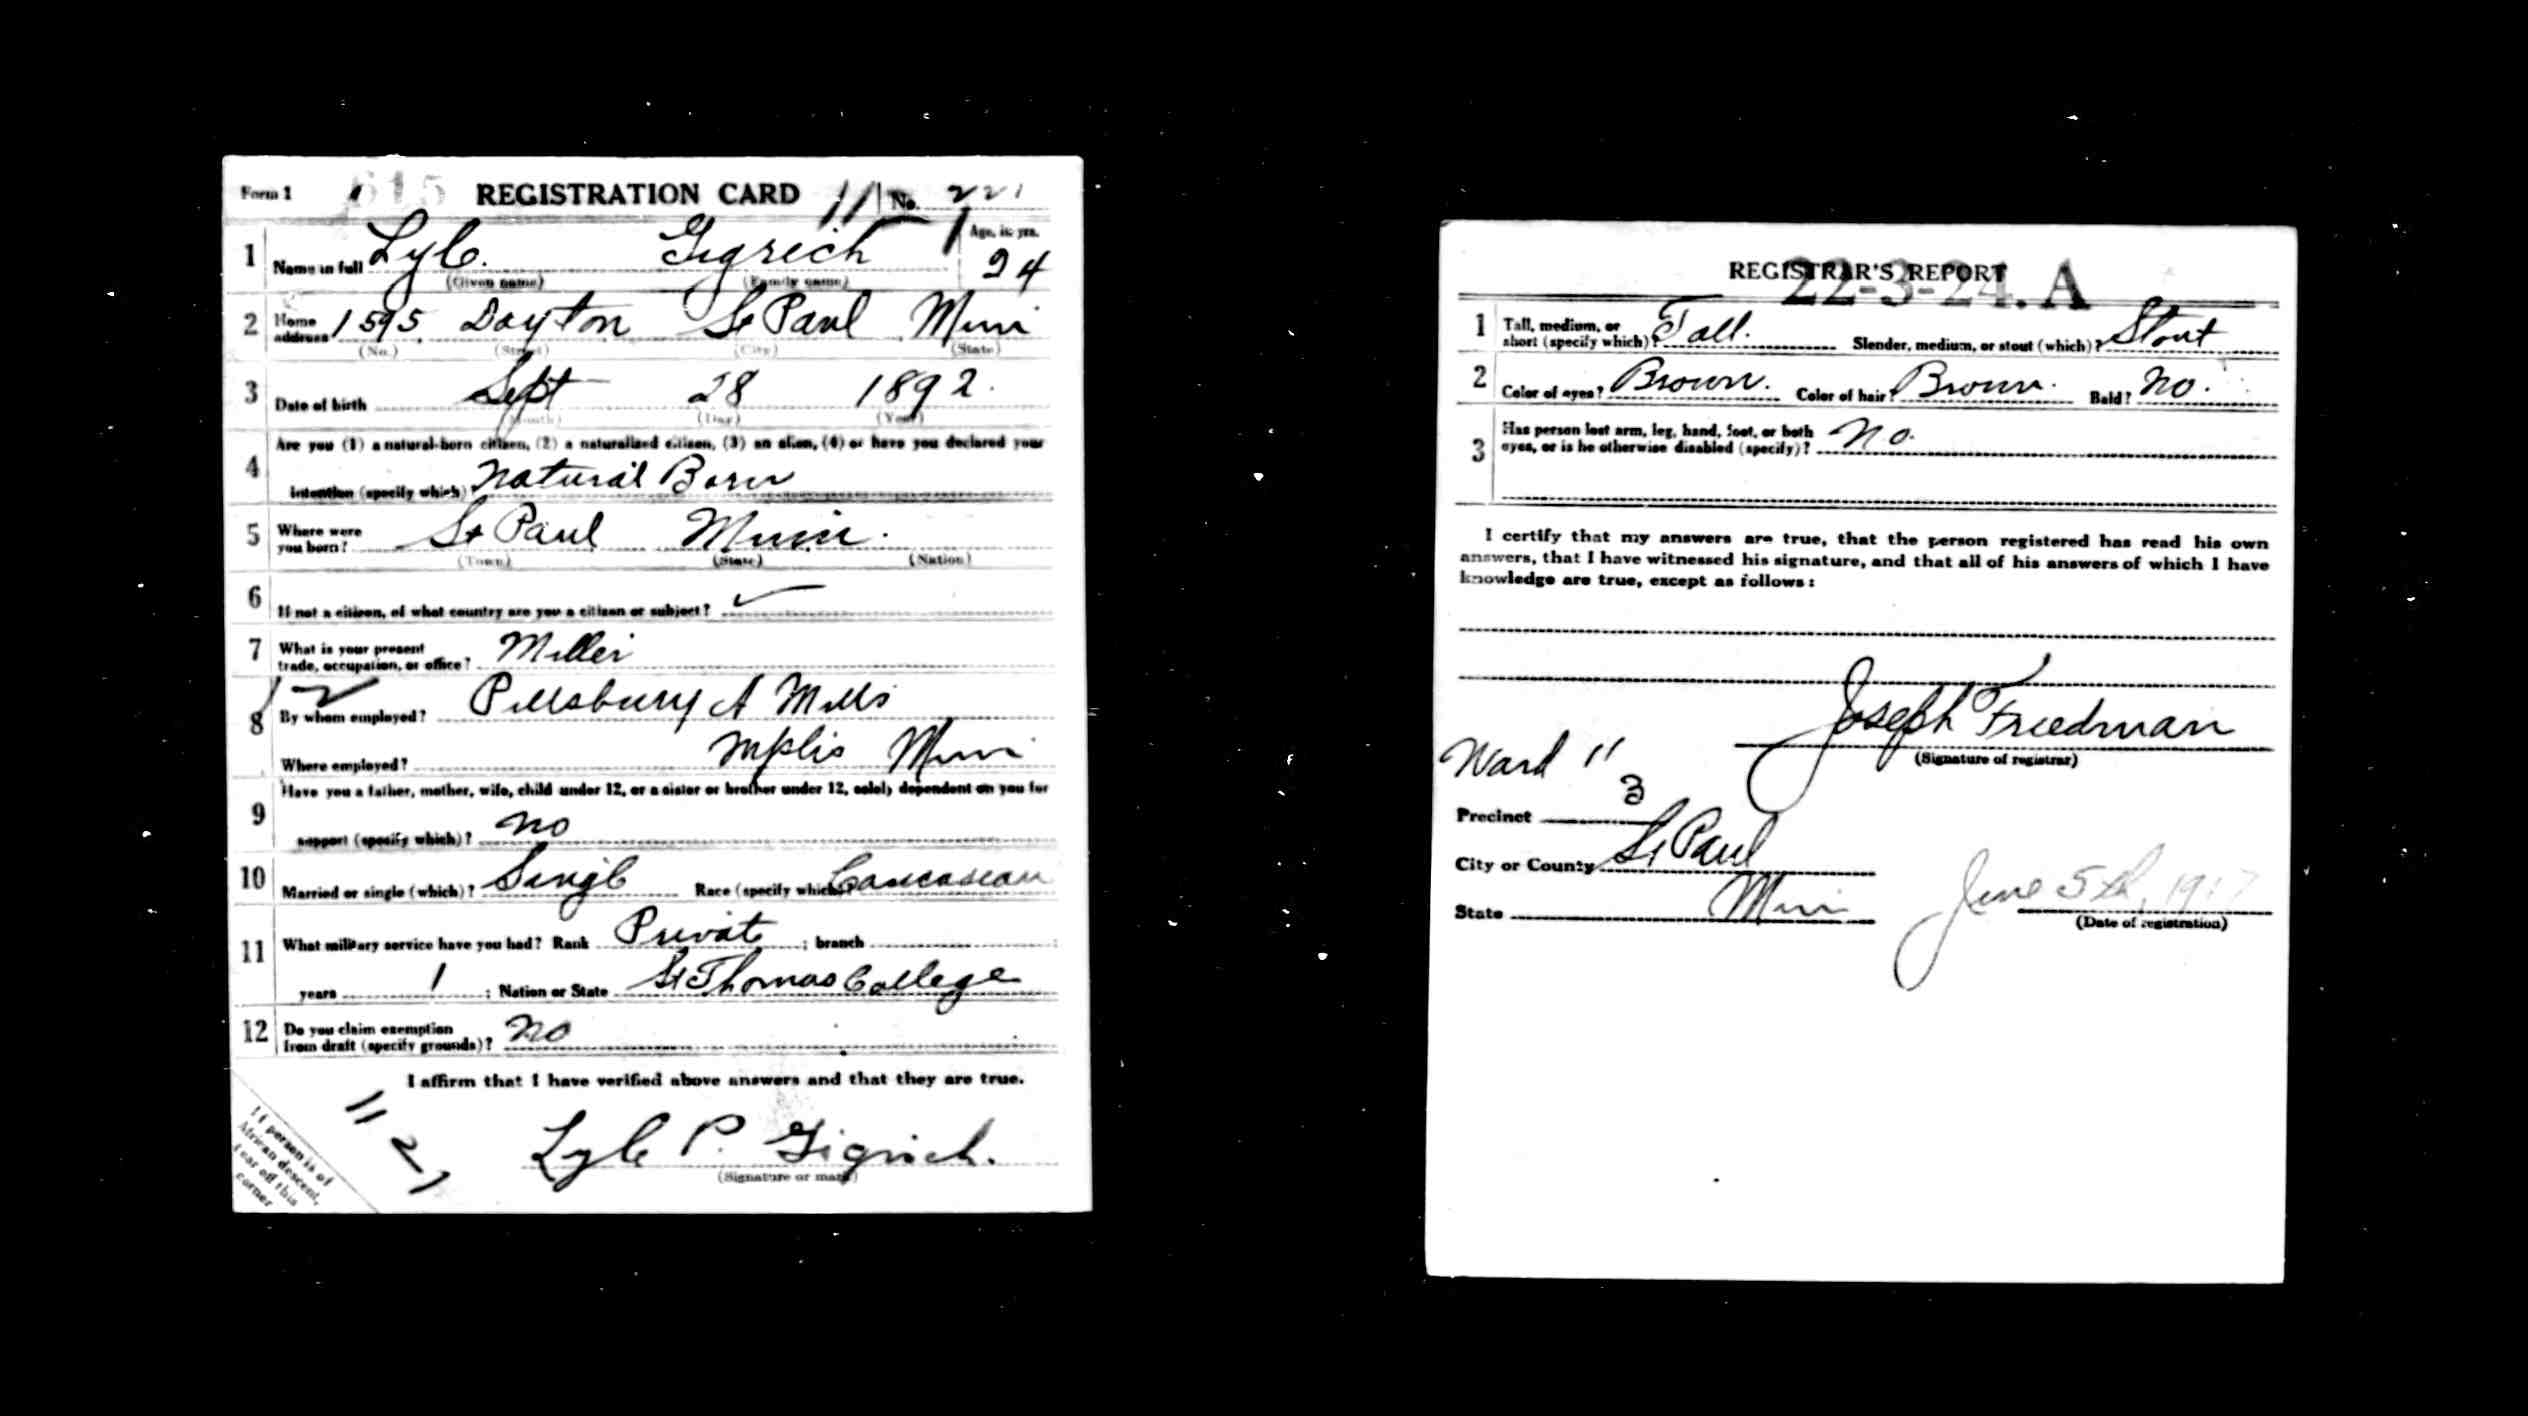 Form 1 615 REGISTRATION CARD 11 No. 221
1 Name in full Lyle. Gigrich Age, in yrs.
(Given name) (Family name) 24
2 Home address 1595 Dayton St Paul Minn
(No.) (Street) (City) (State)
3 Date of birth Sept 28 1892.
(Month) (Day) (Year)
Are you (1) a natural-born citizen, (2) a naturalized citizen, (3) an alien, (4) or have you declared your
4 intention (specify which)? Natural Born
5 Where were you born? St Paul Minn.
(Town) (State) (Nation)
6 If not a citizen, of what country are you a citizen or subject?
7 What is your present
trade, occupation, or office? Miller
8 By whom employed? Pillsbury A Mills
Where employed? Mplis Minn
Have you a father, mother, wife, child under 12, or a sister or brother under 12, solely dependent on you for
9 support (specify which)? no
10 Married or single (which)? Single Race (specify which)? Caucasean
11 What military service have you had? Rank Private ; branch ;
years 1 ; Nation or State St Thomas College
12 Do you claim exemption
from draft (specify grounds)? no
I affirm that I have verified above answers and that they are true.
Lyle P. Gigrich.
(Signature or mark)
If person is of
African descent,
tear off this
corner
11 221
REGISTRAR'S REPORT
22-3-24. A
1 Tall, medium, or
short (specify which)? Tall. Slender, medium, or stout (which)? Stout
2 Color of eyes? Brown. Color of hair? Brown. Bald? No.
3 Has person lost arm, leg, hand, foot, or both
eyes, or is he otherwise disabled (specify)? No.
I certify that my answers are true, that the person registered has read his own
answers, that I have witnessed his signature, and that all of his answers of which I have
knowledge are true, except as follows:
Joseph Friedman
(Signature of registrar)
Ward 11
Precinct 3
City or County St Paul
State Minn
June 5th, 1917
(Date of registration)